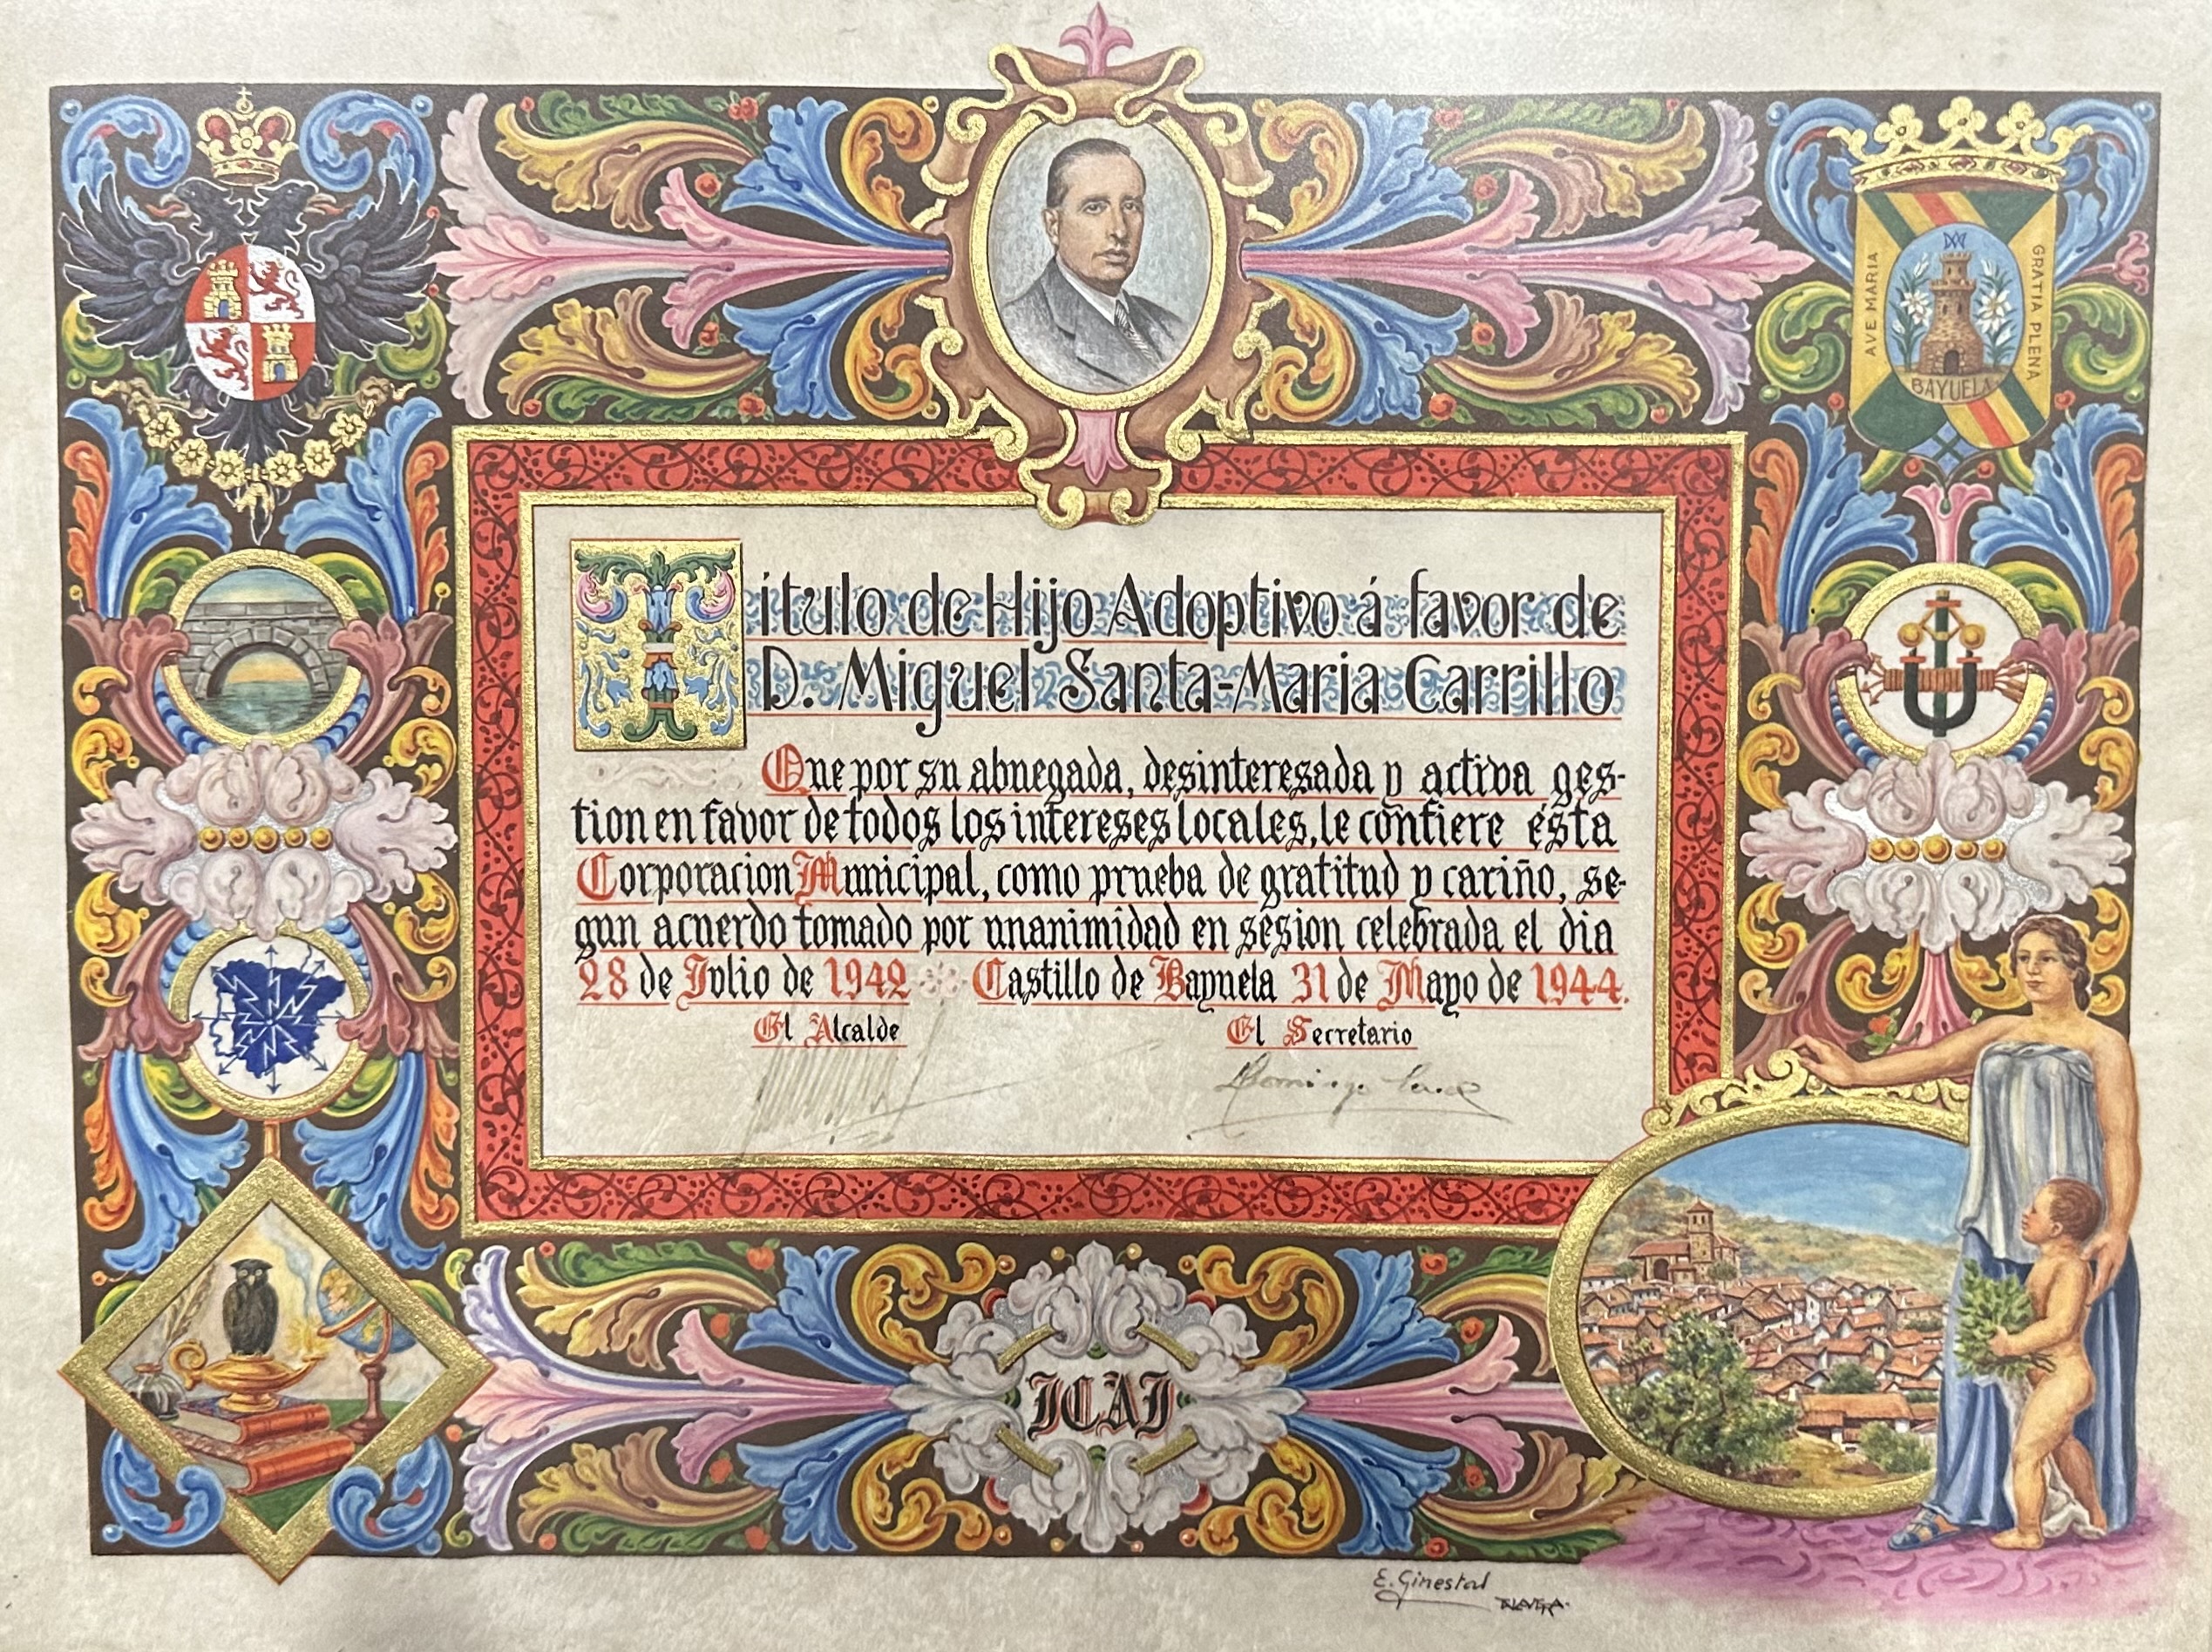 AVE MARIA
GRATIA PLENA
BAYUELA
Título de Hijo Adoptivo á favor de
D. Miguel Santa-Maria Carrillo
Que por su abnegada, desinteresada y activa ges-
tion en favor de todos los intereses locales, le confiere ésta
Corporacion Municipal, como prueba de gratitud y cariño, se-
gun acuerdo tomado por unanimidad en sesion celebrada el dia
28 de Julio de 1942 Castillo de Bayuela 31 de Mayo de 1944.
El Alcalde El Secretario
Domingo
ICAI
E. Ginestal